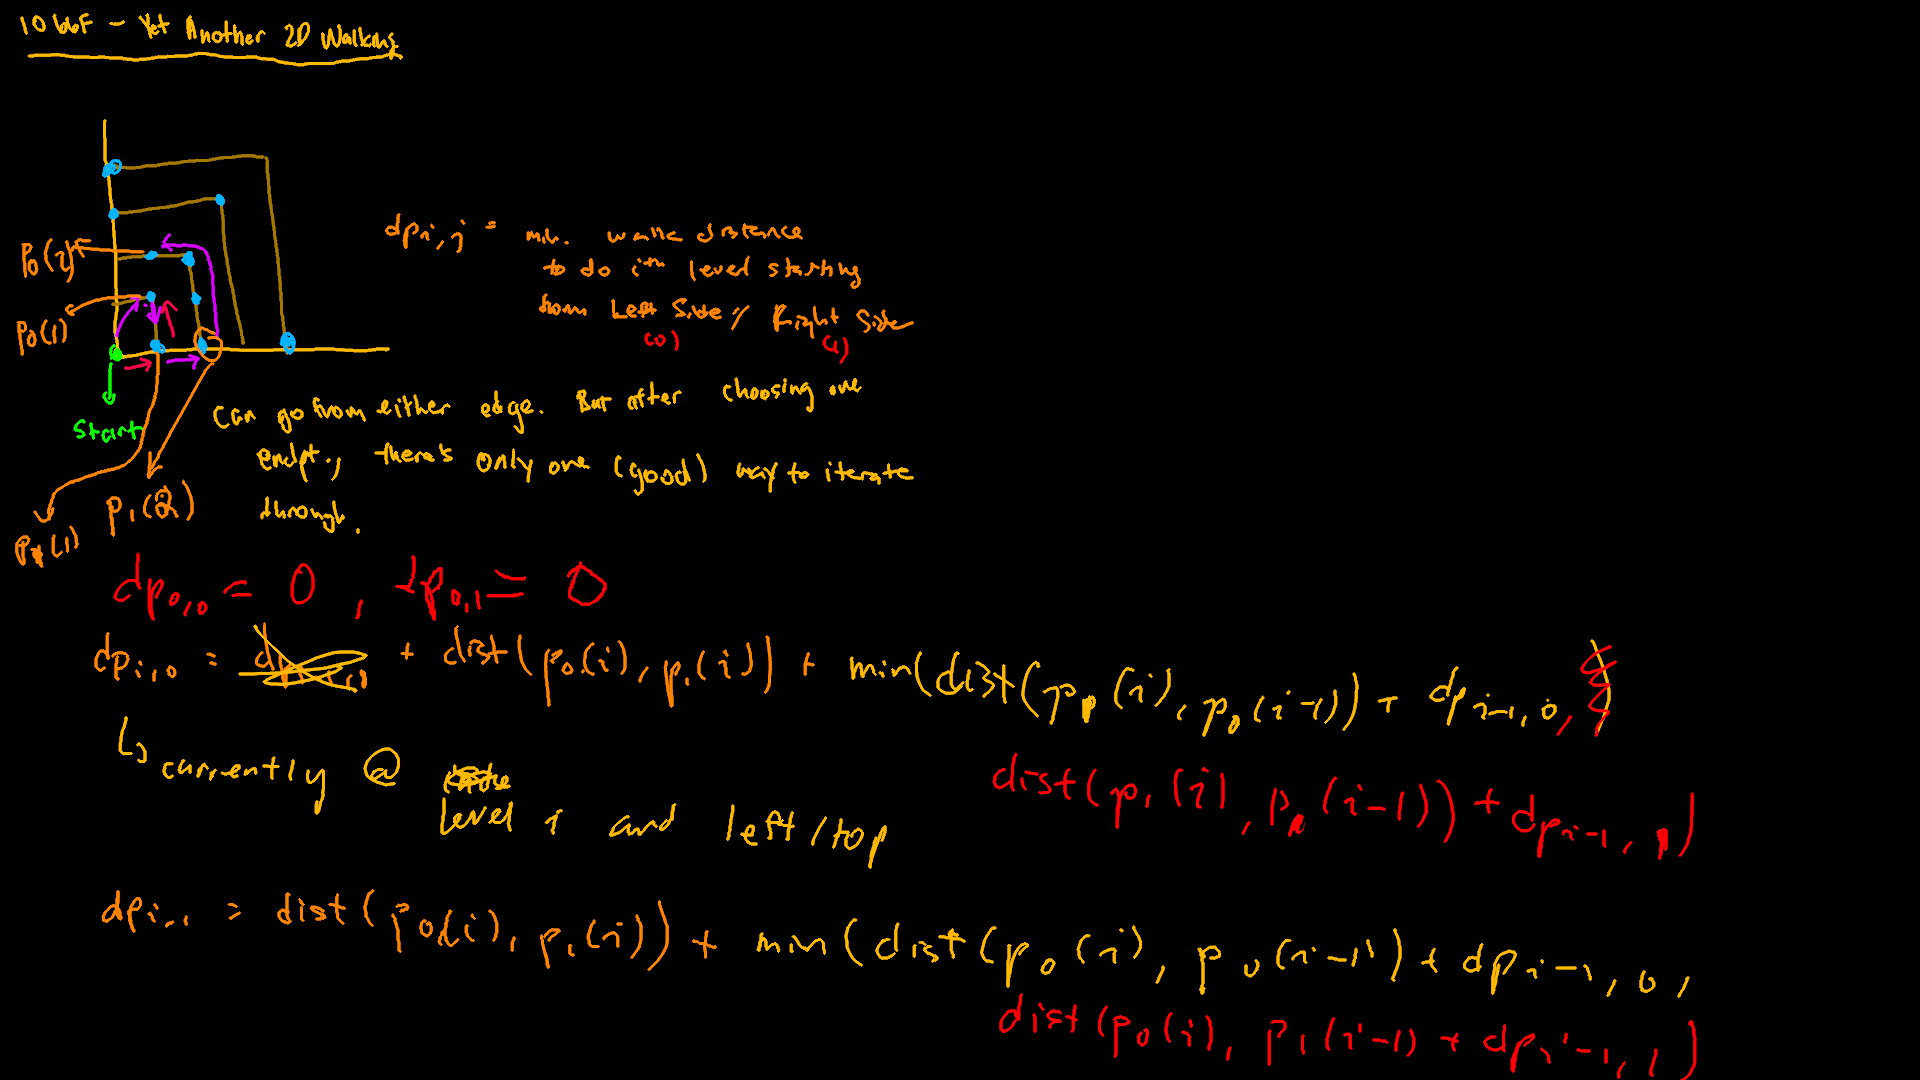 1066F - Yet Another 2D Walking
dp i,j = min. walk distance
to do iᵗʰ level starting
from Left Side / Right Side
(0) (1)
P₀(2)
P₀(1)
Start
P₁(2)
P₁(1)
Can go from either edge. But after choosing one
endpt., there's only one (good) way to iterate
through.
dp₀,₀ = 0 , dp₀,₁ = 0
dp i,0 = + dist(p₀(i), p₁(i)) + min(dist(p₁(i), p₀(i-1)) + dp i-1,0,
dist(p₁(i), p₁(i-1)) + dp i-1,1)
↳ currently @
level i and left/top
dp i,1 = dist(p₀(i), p₁(i)) + min(dist(p₀(i), p₀(i-1)) + dp i-1,0,
dist(p₀(i), p₁(i-1) + dp i-1,1)